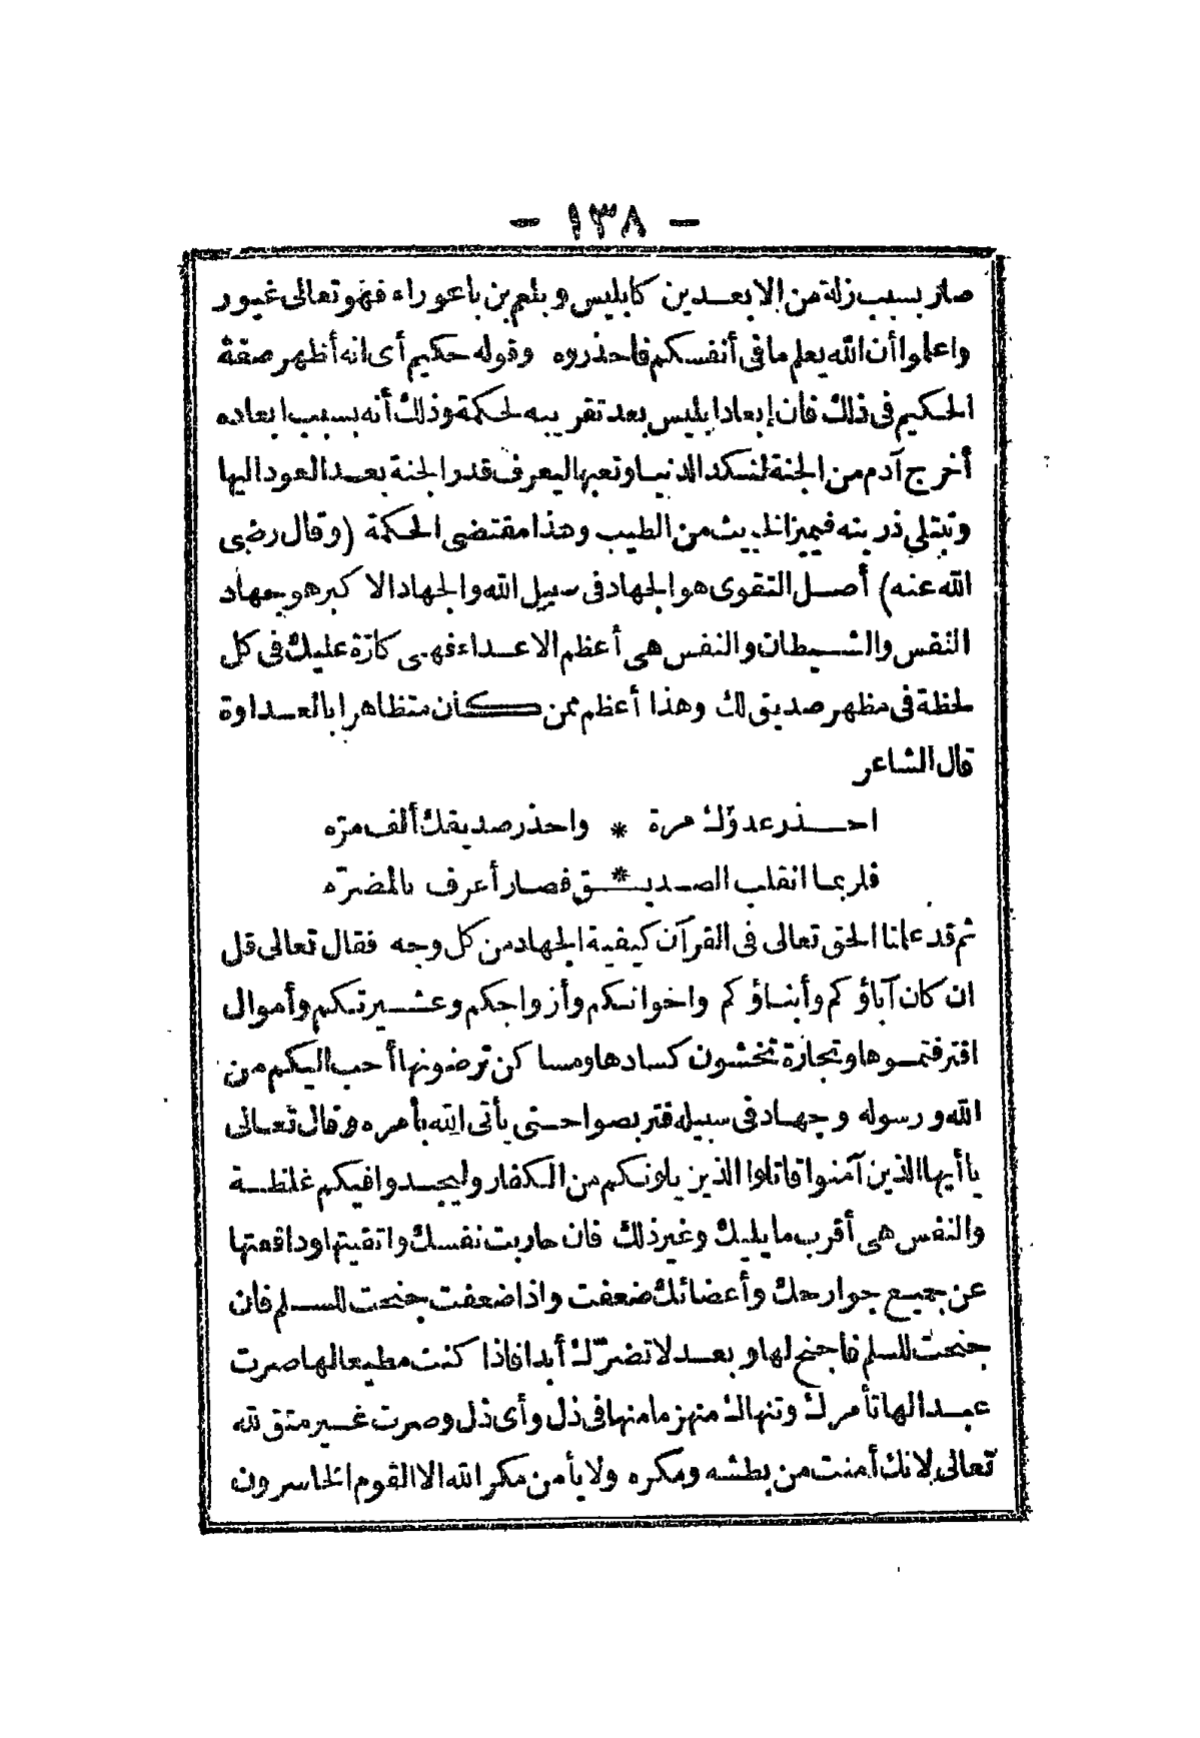 — ١٣٨ —
صار بسبب زلة من الابعدين كابليس وبلعم بن باعوراء فهو تعالى غيور
واعلموا أن الله يعلم ما فى أنفسكم فاحذروه وقوله حكيم أى انه أظهر صفة
الحكيم فى ذلك فان إبعاد ابليس بعد تقريبه لحكمة وذلك أنه بسبب ابعاده
أخرج آدم من الجنة لنكد الدنيا وتعبها ليعرف قدر الجنة بعد العود اليها
وتبتلى ذريته فيميز الخبيث من الطيب وهذا مقتضى الحكمة (وقال رضى
الله عنه) أصل التقوى هو الجهاد فى سبيل الله والجهاد الاكبر هو جهاد
النفس والشيطان والنفس هى أعظم الاعداء فهى كارّة عليك فى كل
لحظة فى مظهر صديق لك وهذا أعظم ممن كان متظاهرا بالعداوة
قال الشاعر
احذر عدوّك مرة * واحذر صديقك ألف مرّه
فلربما انقلب الصديـ * ـق فصار أعرف بالمضرّه
ثم قد علمنا الحق تعالى فى القرآن كيفية الجهاد من كل وجه فقال تعالى قل
ان كان آباؤكم وأبناؤكم واخوانكم وأزواجكم وعشيرتكم وأموال
اقترفتموها وتجارة تخشون كسادها ومساكن ترضونها أحب اليكم من
الله ورسوله وجهاد فى سبيله فتربصوا حتى يأتى الله بأمره وقال تعالى
يا أيها الذين آمنوا قاتلوا الذين يلونكم من الكفار وليجدوا فيكم غلظة
والنفس هى أقرب ما يليك وغير ذلك فان حاربت نفسك واتقيتها ودافعتها
عن جميع جوارحك وأعضائك ضعفت واذا ضعفت جنحت للسلم فان
جنحت للسلم فاجنح لها وبعد لا تضرّك أبدا فاذا كنت مطيعا لها صرت
عبدا لها تأمرك وتنهاك منهزما منها فى ذل وأى ذل وصرت غير متق لله
تعالى لانك أمنت من بطشه ومكره ولا يأمن مكر الله الا القوم الخاسرون